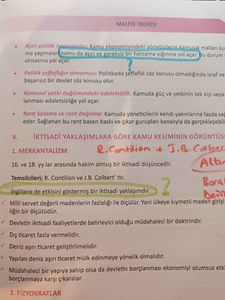 MALİYE TEORİSİ
• Aşırı politik harcamalar: Kamu ekonomisindeki yöneticilerin kamusal malları
kamu da aşırı ve gereksiz bir harcama yığınına yol açar. bu durum
olmasına yol açar.
?
• Politik şeffaflığın olmaması: Politikada şeffaflık söz konusu olmadığında israf ve
başarısız bir devlet söz konusu olur.
• Kamusal yetki dağılımındaki adaletsizlik. Kamuda güç ve yetkinin tek kişi veya
lanması adaletsizliğe yol açar.
• Rant kollama ve rant dağıtma: Kamuda yöneticilerin kendi yakınlarına fayda sağ
eder. Sağlanan bu rant bazen baskı ve çıkar gurupları kanalıyla da gerçekleşebilir
V. İKTİSADİ YAKLAŞIMLARA GÖRE KAMU KESİMİNİN GÖRÜNTÜSÜ
R. Contilion & J.B. Colbert
1. MERKANTİLİZM
16. ve 18. yy lar arasında hakim olmuş bir iktisadi düşüncedir.
Temsilcileri; R. Contilion ve J.B. Colbert' tir.
İngiltere de etkisini göstermiş bir iktisadi yaklaşımdır.
2
• Milli servet değerli madenlerin fazlalığı ile ölçülür. Yani ülkeye kıymetli maden giri
liğin bir ölçütüdür.
• Devletin iktisadi faaliyetlerde belirleyici olduğu müdahaleci bir doktrindir.
• Dış ticaret fazla vermelidir.
• Deniz aşırı ticaret geliştirilmelidir.
• Yapılan deniz aşırı ticaret mülk edinmeye yönelik olmalıdır.
• Müdahaleci bir yapıya sahip olsa da devletin borçlanması ekonomiyi olumsuz etk
borçlanmaya karşı çıkarlar.
2. FİZYOKRATLAR